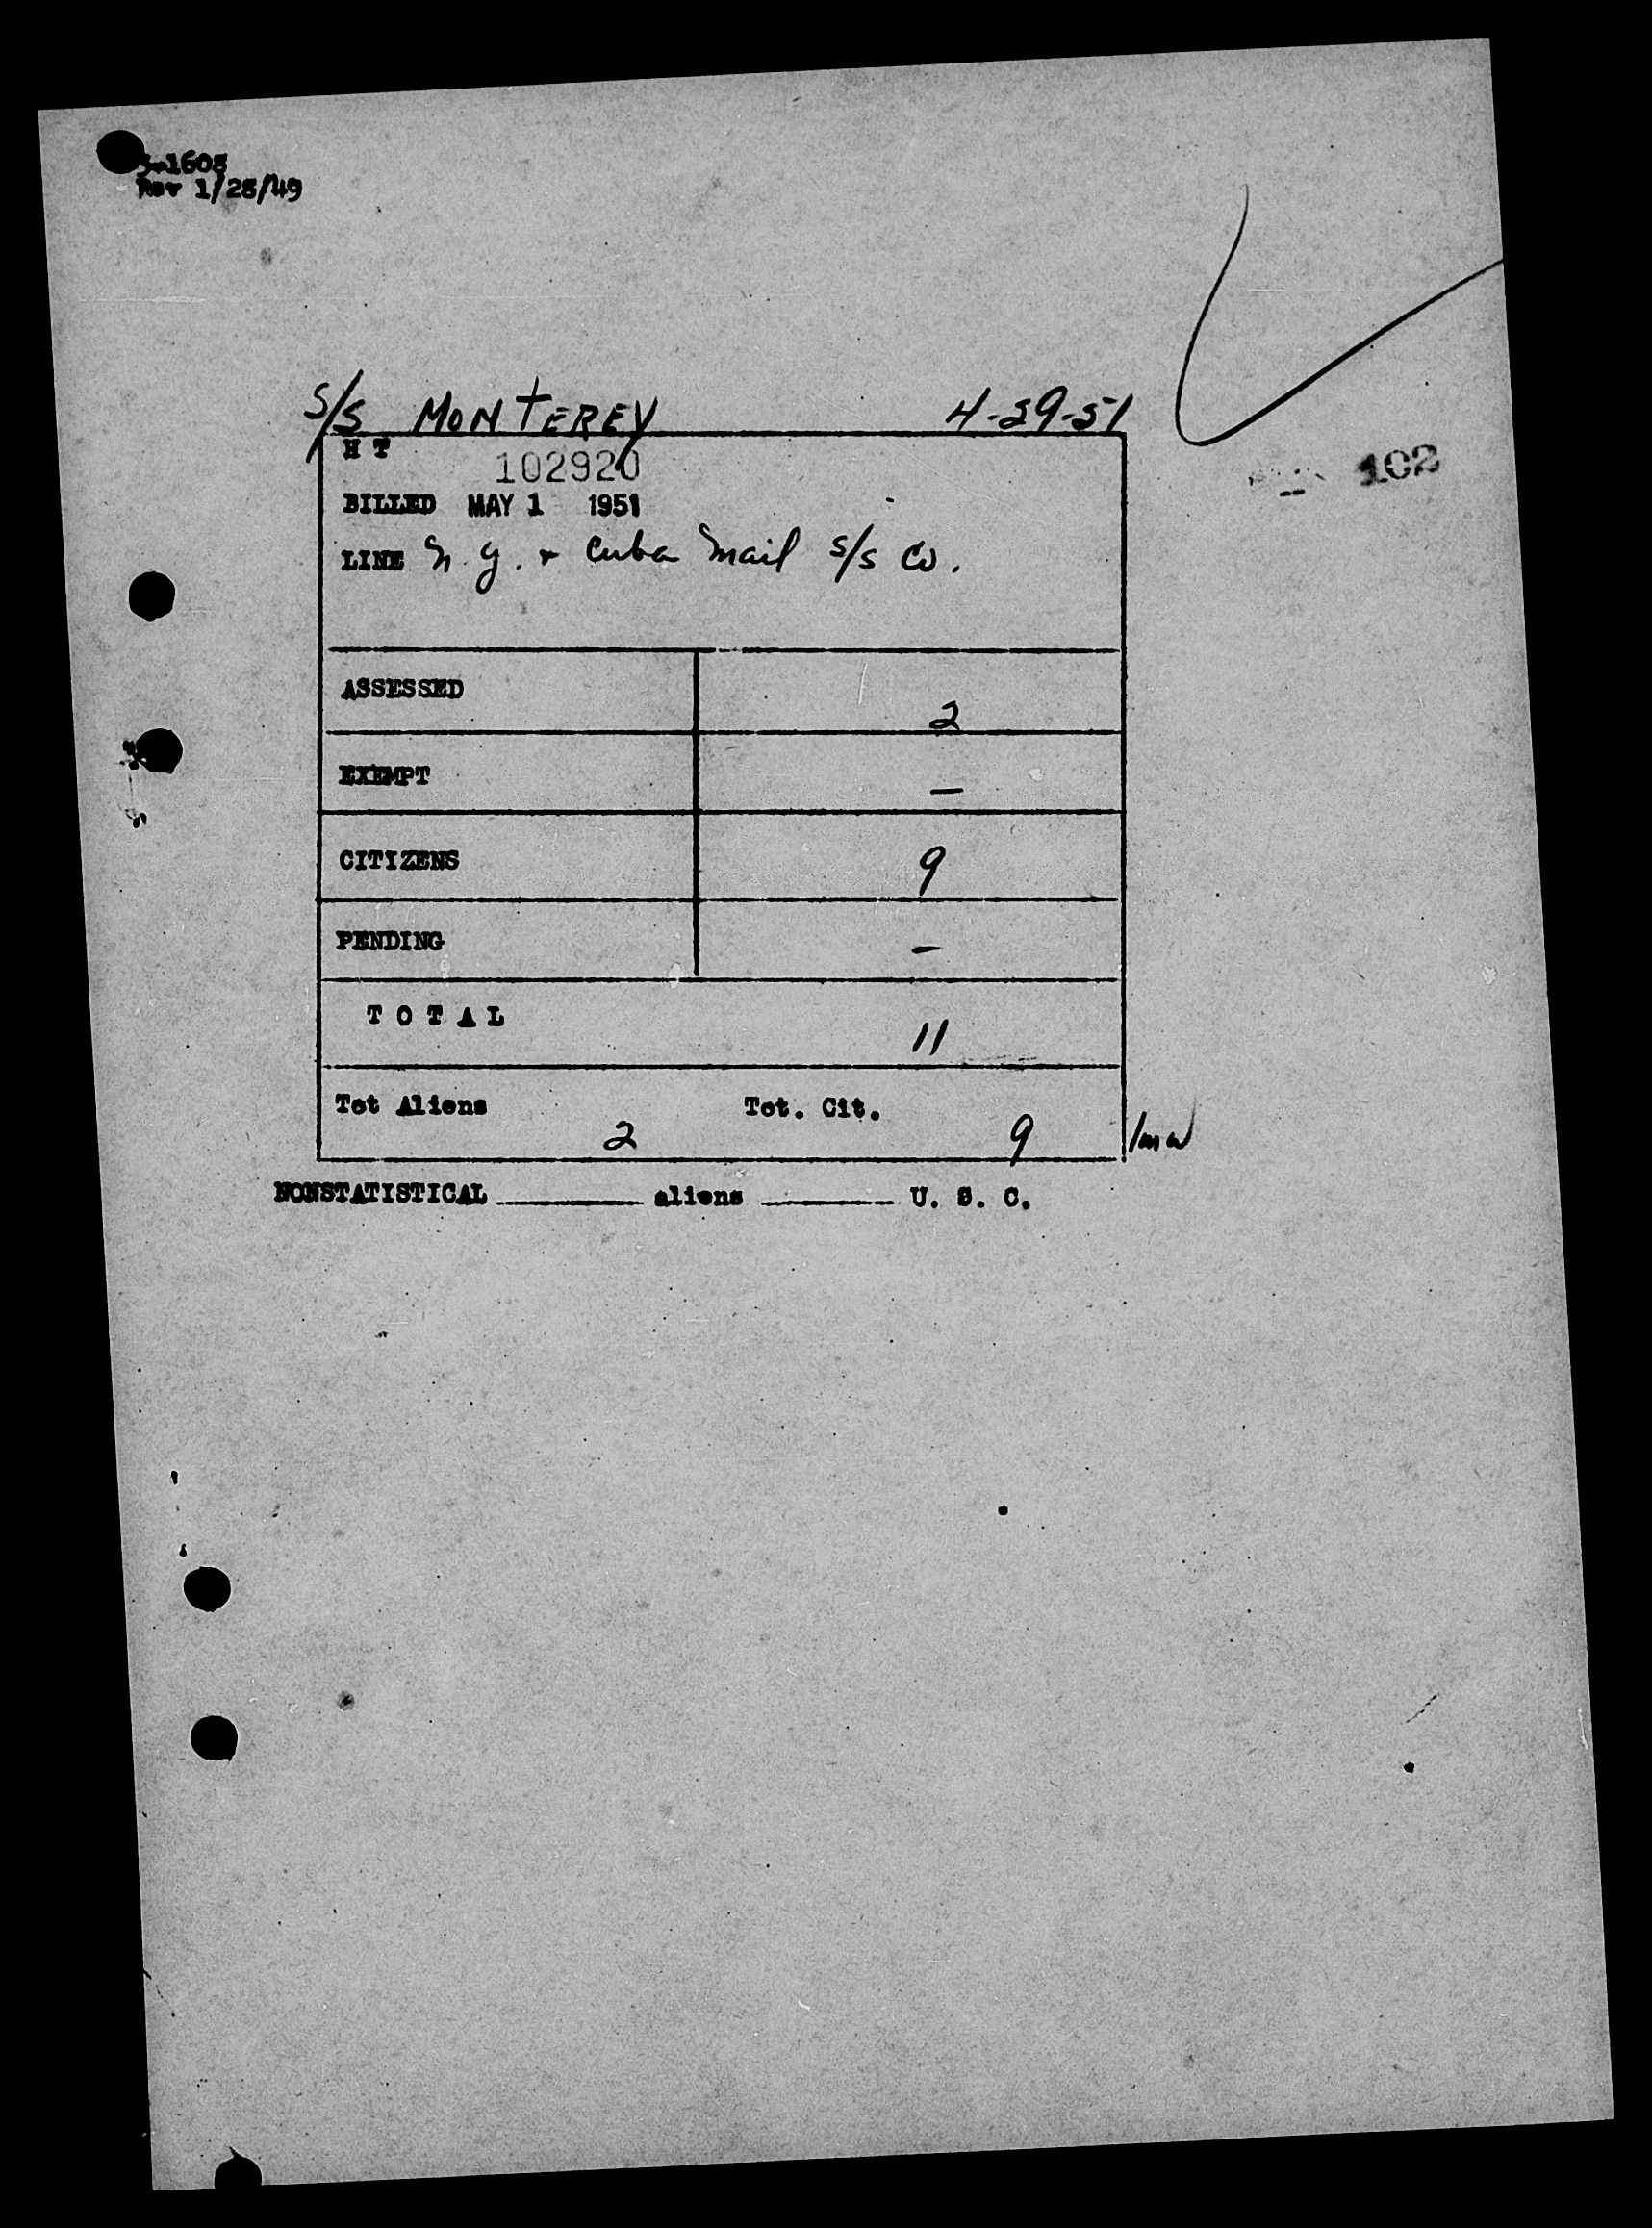 3-1608
Rev 1/28/49
S/S MONTEREY 4-29-51
H T
102920
BILLED MAY 1 1951
LINE N. Y. + Cuba Mail S/S Co.
102
ASSESSED 2
EXEMPT —
CITIZENS 9
PENDING —
T O T A L 11
Tot Aliens 2 Tot. Cit. 9
NONSTATISTICAL ________ aliens ________ U. S. C.